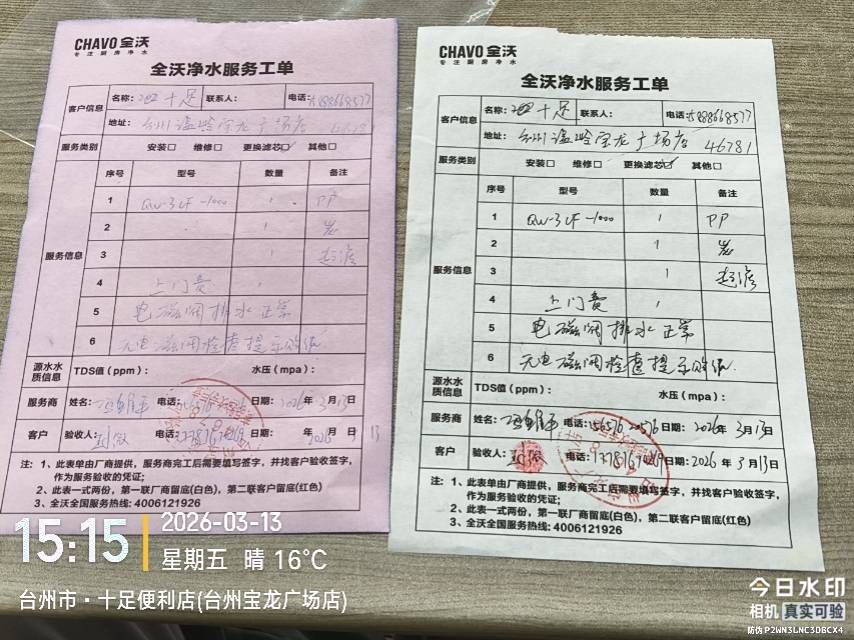 CHAVO 全沃
专注厨房净水
全沃净水服务工单
客户信息 名称: 十足 联系人: 电话:
地址: 台州温岭宝龙广场店 46781
服务类别 安装□ 维修□ 更换滤芯□ 其他□
服务信息 序号 型号 数量 备注
1 QW-3CF-1000 1 PP
2 炭
3
4 上门费
5 电磁阀排水正常
6 无电磁阀检查提示贴纸
源水水质信息 TDS值(ppm): 水压(mpa):
服务商 姓名: 电话: 日期: 2026年 3月13日
客户 验收人: 电话: 日期: 2026年 3月13
注: 1、此表单由厂商提供,服务商完工后需要填写签字,并找客户验收签字,
作为服务验收的凭证;
2、此表一式两份,第一联厂商留底(白色),第二联客户留底(红色)
3、全沃全国服务热线: 4006121926
CHAVO 全沃
专注厨房净水
全沃净水服务工单
客户信息 名称: 十足 联系人: 电话:
地址: 台州温岭宝龙广场店 46781
服务类别 安装□ 维修□ 更换滤芯☑ 其他□
服务信息 序号 型号 数量 备注
1 QW-3CF-1000 1 PP
2 1 炭
3 1
4 上门费 1
5 电磁阀排水正常
6 无电磁阀检查提示贴纸
源水水质信息 TDS值(ppm): 水压(mpa):
服务商 姓名: 电话: 15657620576 日期: 2026年 3月13日
客户 验收人: 电话: 日期: 2026年 3月13日
注: 1、此表单由厂商提供,服务商完工后需要填写签字,并找客户验收签字,
作为服务验收的凭证;
2、此表一式两份,第一联厂商留底(白色),第二联客户留底(红色)
3、全沃全国服务热线: 4006121926
15:15 2026-03-13
星期五 晴 16°C
台州市·十足便利店(台州宝龙广场店)
今日水印
相机 真实可验
防伪 P2WN3LNC3DBCX4